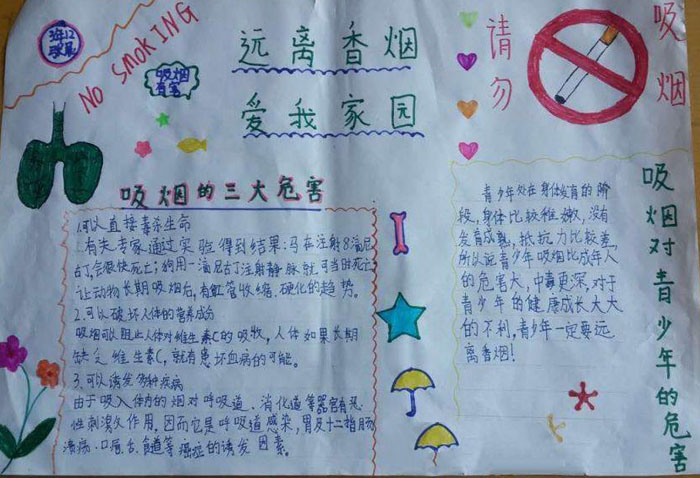 NO SMOKING
吸烟
有害
远离香烟
爱我家园
请勿
吸烟
吸烟的三大危害
1.可以直接毒杀生命
有关专家通过实验得到结果:马在注射8滴尼
古丁,会很快死亡;狗用一滴尼古丁注射静脉就可当时死亡
让动物长期吸烟后,有血管收缩、硬化的趋势。
2.可以破坏人体的营养成分
吸烟可以阻止人体对维生素C的吸收,人体如果长期
缺乏维生素C,就有患坏血病的可能。
3.可以诱发多种疾病
由于吸入体内的烟对呼吸道、消化道等器官有恶
性刺激作用,因而它是呼吸道感染,胃及十二指肠
溃疡、口唇、舌、食道等癌症的诱发因素。
青少年处在身体发育的阶
段,身体比较稚嫩,没有
发育成熟,抵抗力比较差,
所以说青少年吸烟比成年人
的危害大,中毒更深,对于
青少年的健康成长大大
的不利,青少年一定要远
离香烟!
吸烟对青少年的危害